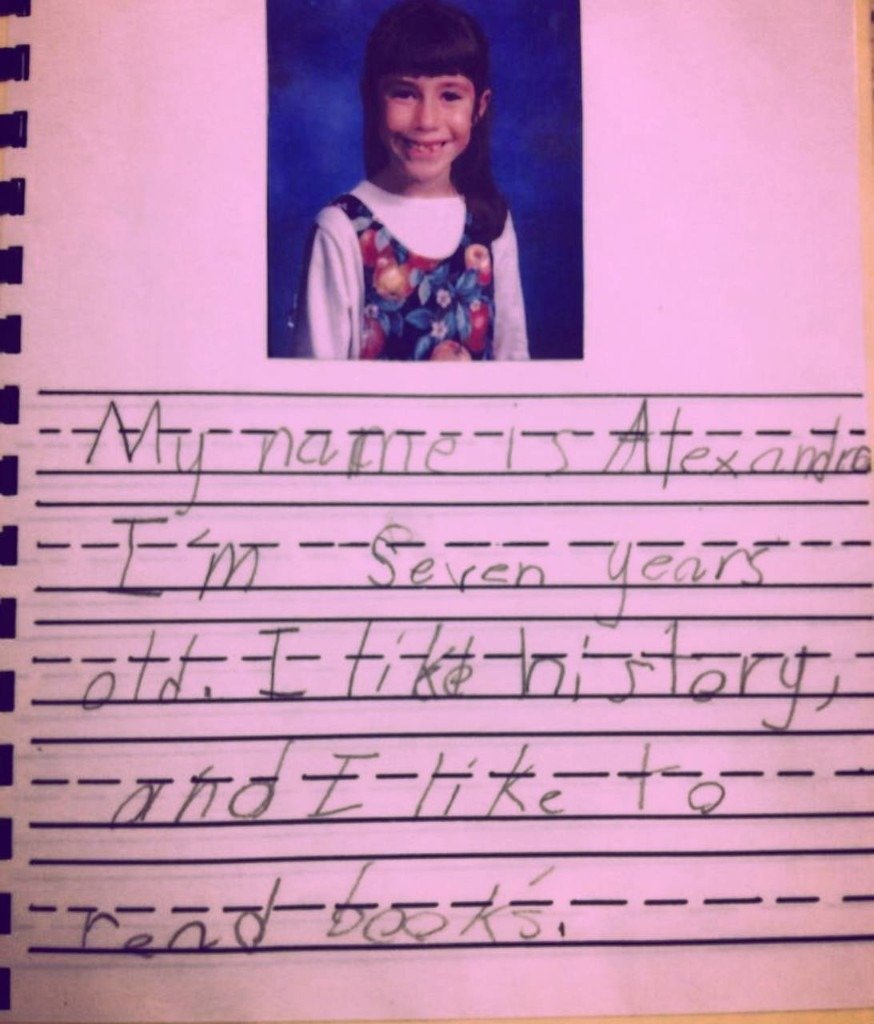 My name is Alexandra
I'm Seven years
old. I like history,
and I like to
read book's.